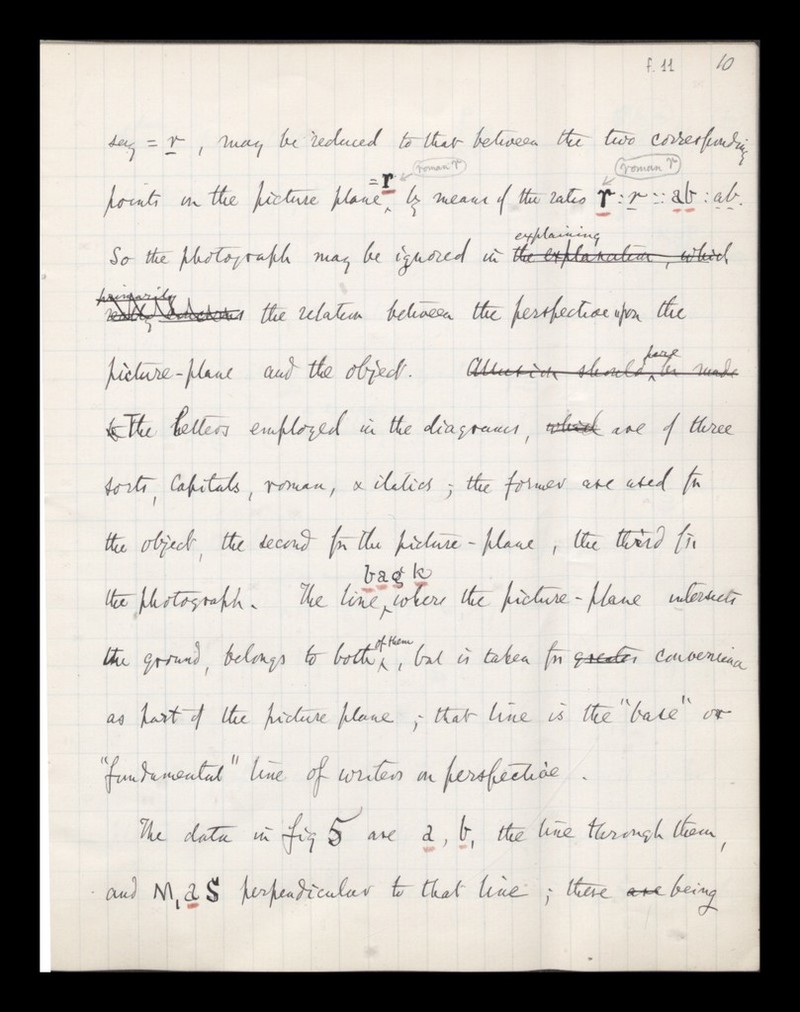 f. 11 10
say = r, may be reduced to that between the two corresponding
= r roman r roman r
points on the picture plane, by means of the ratio r : r :: ab : ab.
explaining
So the photograph may be ignored in the explanation, which
primarily
really the relation between the perspective upon the
have
picture-plane and the object. Allusion should be made
to The letters employed in the diagrams, which are of three
sorts, Capitals, roman, & italics ; the former are used for
the object, the second for the picture-plane, the third for
bagk
the photograph. The line, where the picture-plane intersects
of them
the ground, belongs to both, but is taken for greater convenience
as part of the picture plane ; that line is the "base" or
"fundamental" line of writers on perspective.
The data in fig 5 are a, b, the line through them,
and M, a S perpendicular to that line ; these are being